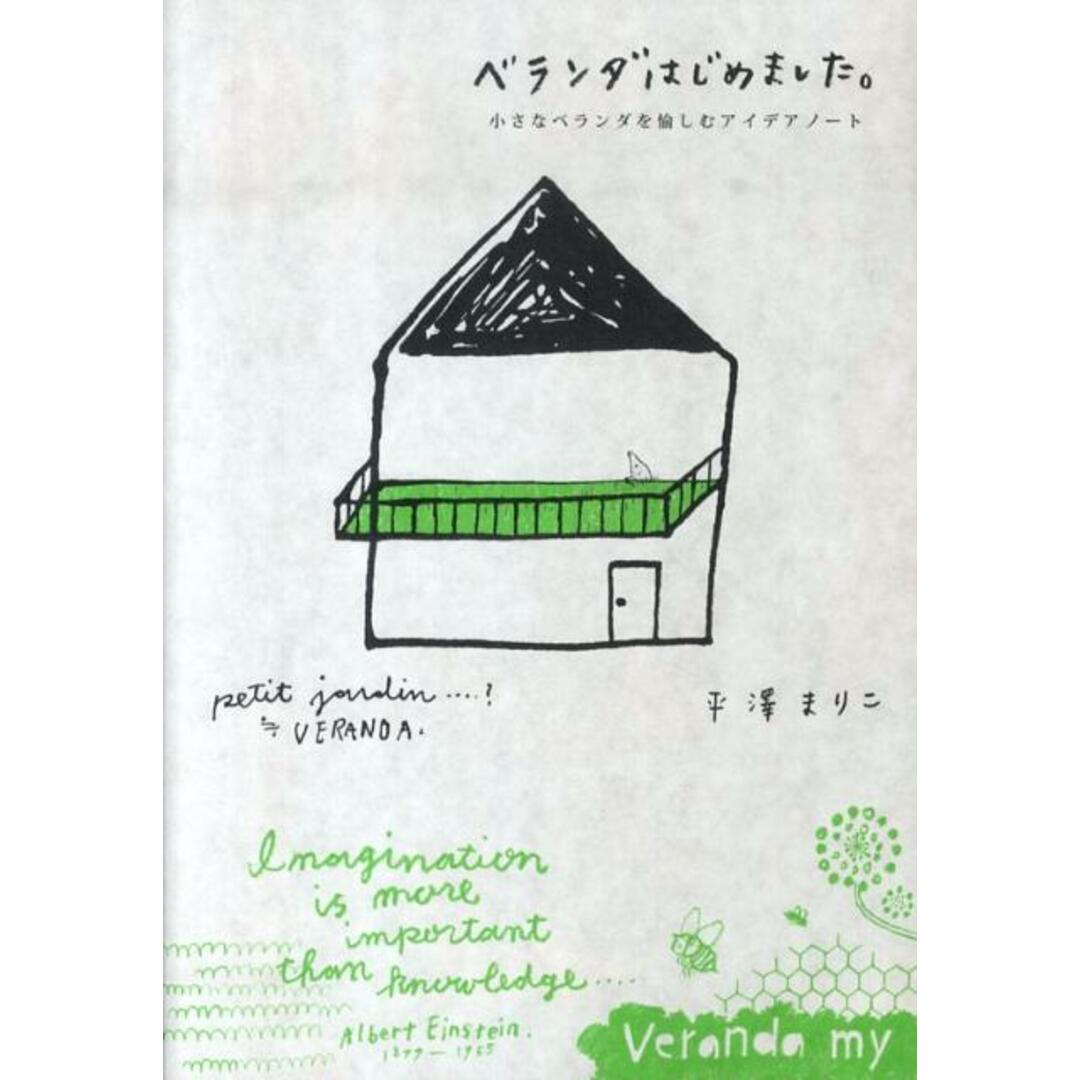 ベランダはじめました。
小さなベランダを愉しむアイデアノート
petit jardin....?
≒ VERANDA.
平澤まりこ
Imagination
is more
important
than knowledge....
Albert Einstein.
1879 — 1955
Veranda my